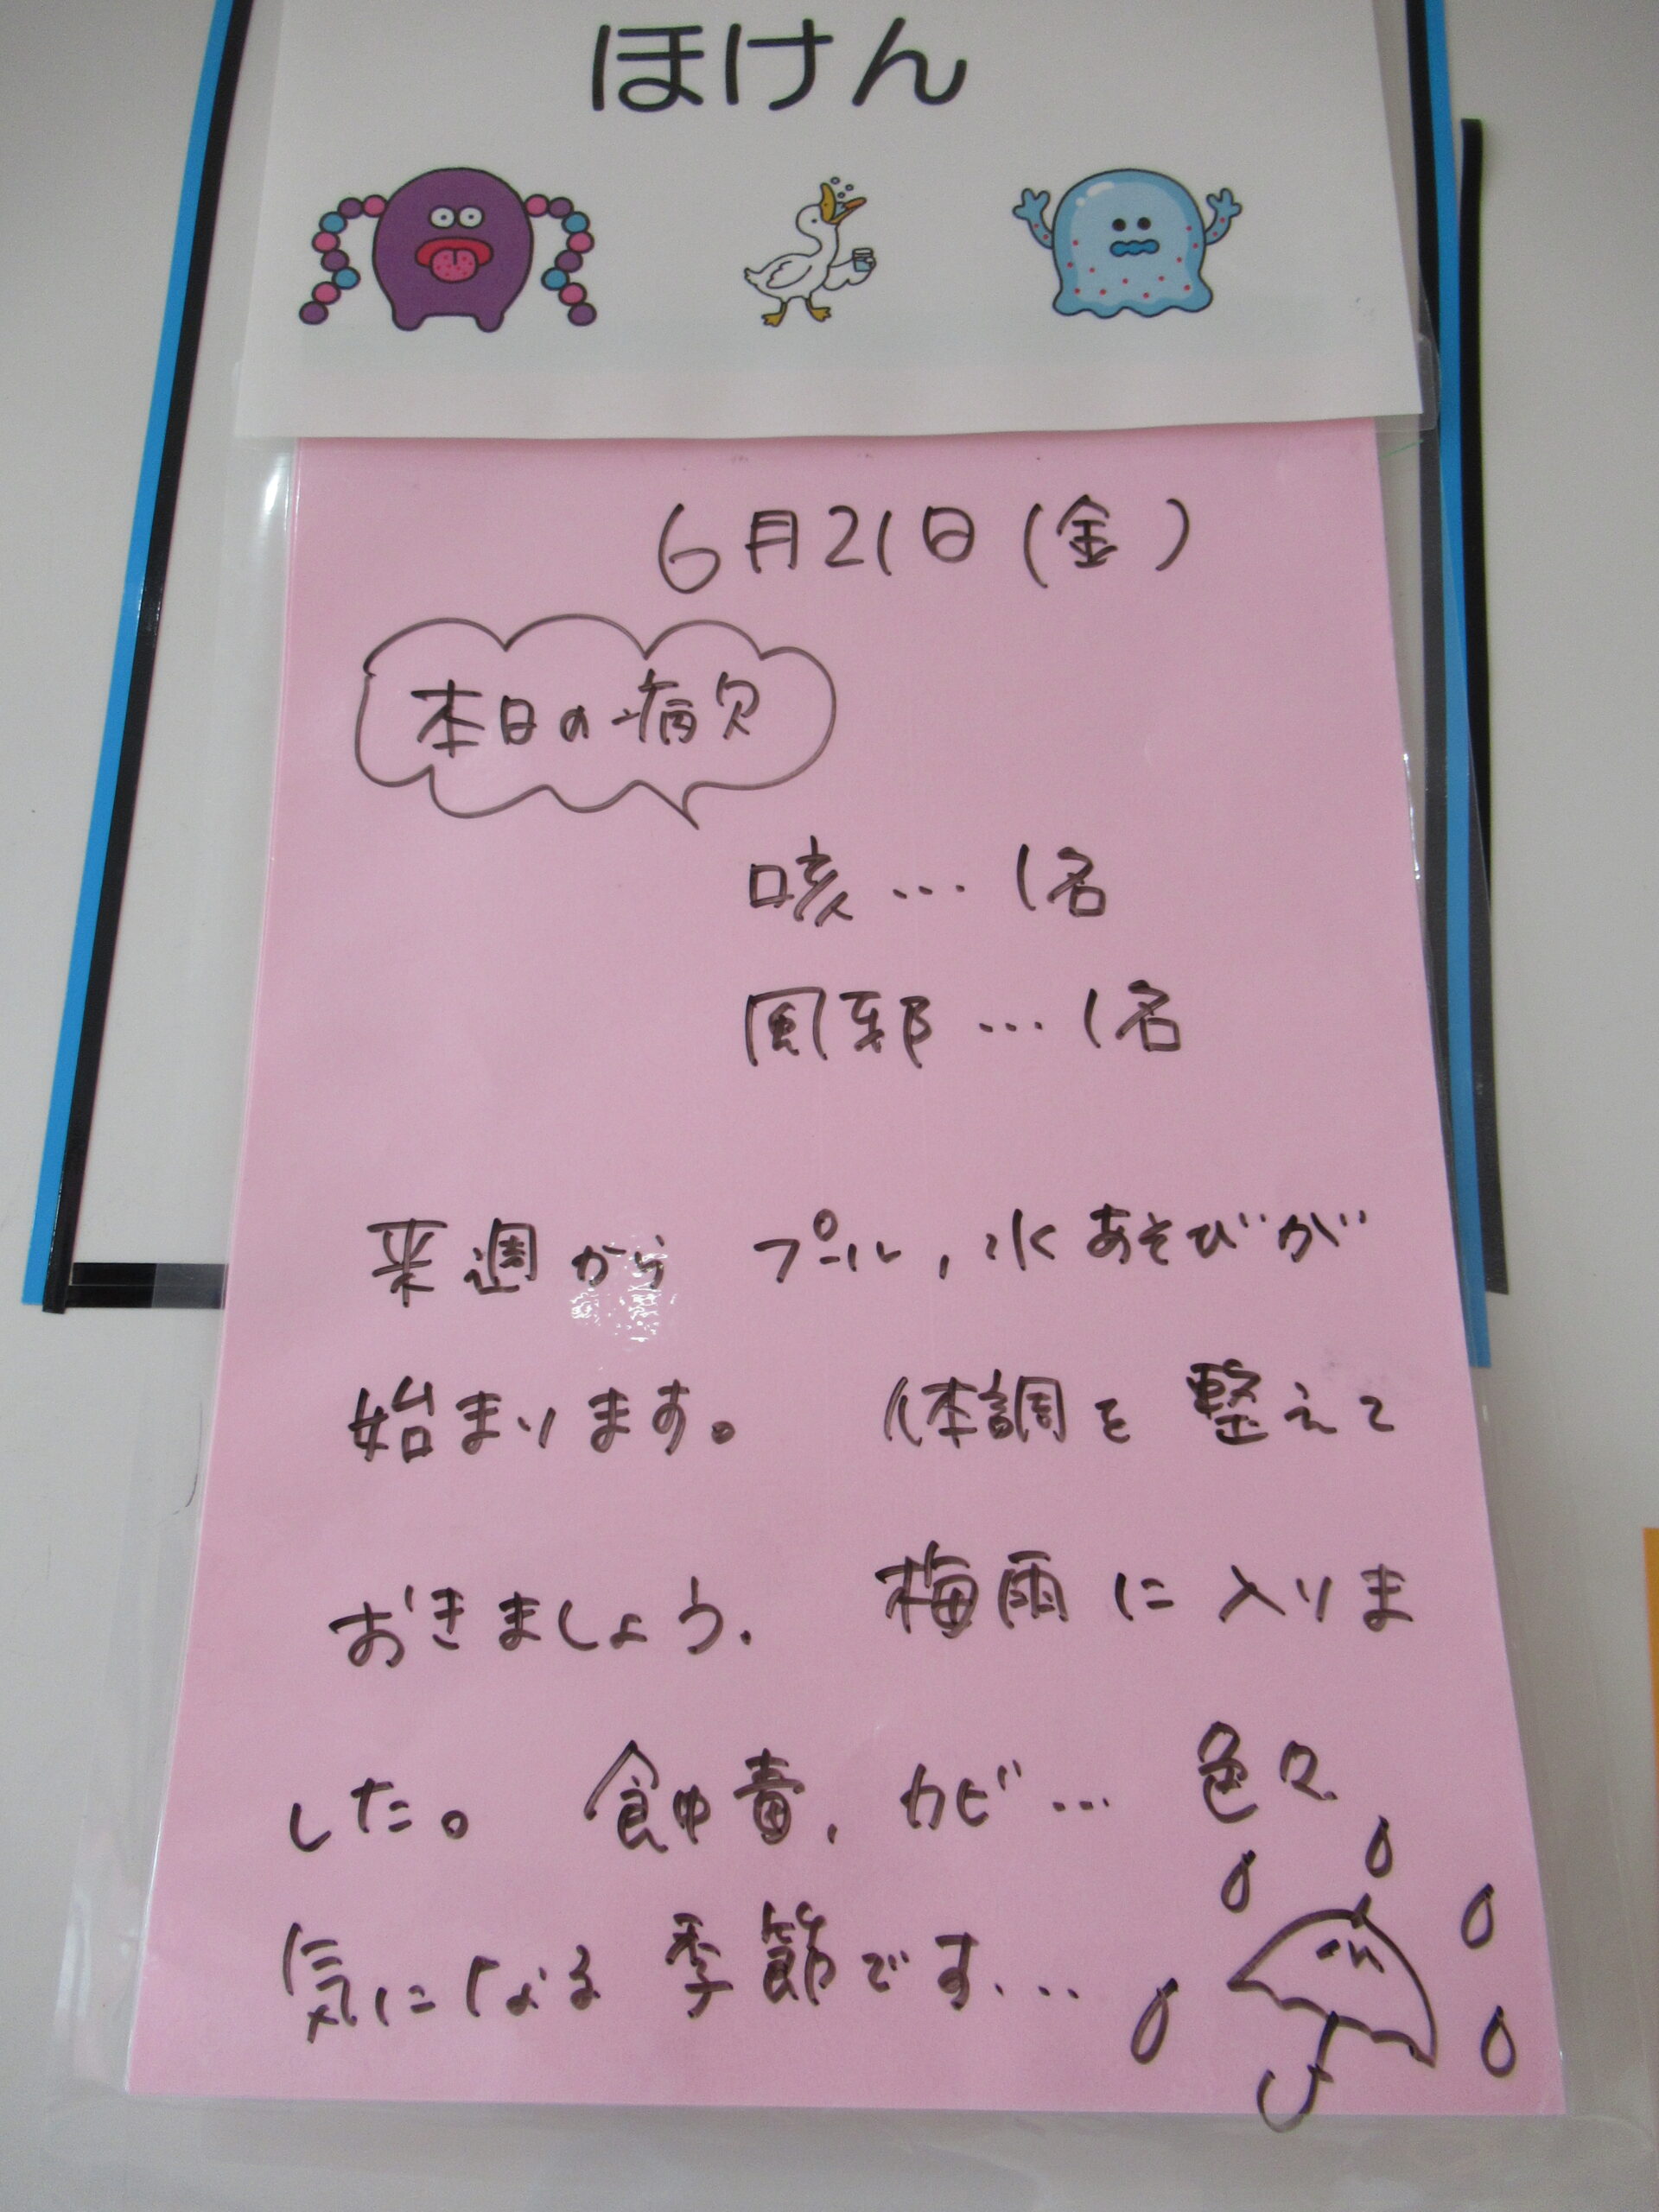 ほけん
6月21日(金)
本日の病欠
咳…1名
風邪…1名
来週から プール,水あそびが
始まります。 体調を整えて
おきましょう. 梅雨に入りま
した。 食中毒,カビ… 色々
気になる季節です...